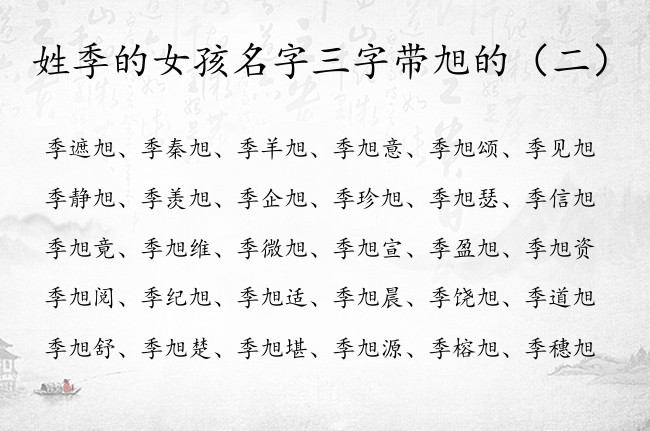 姓季的女孩名字三字带旭的（二）
季遮旭、季秦旭、季羊旭、季旭意、季旭颂、季见旭
季静旭、季羡旭、季企旭、季珍旭、季旭瑟、季信旭
季旭竟、季旭维、季微旭、季旭宣、季盈旭、季旭资
季旭阅、季纪旭、季旭适、季旭晨、季饶旭、季道旭
季旭舒、季旭楚、季旭堪、季旭源、季榕旭、季穗旭